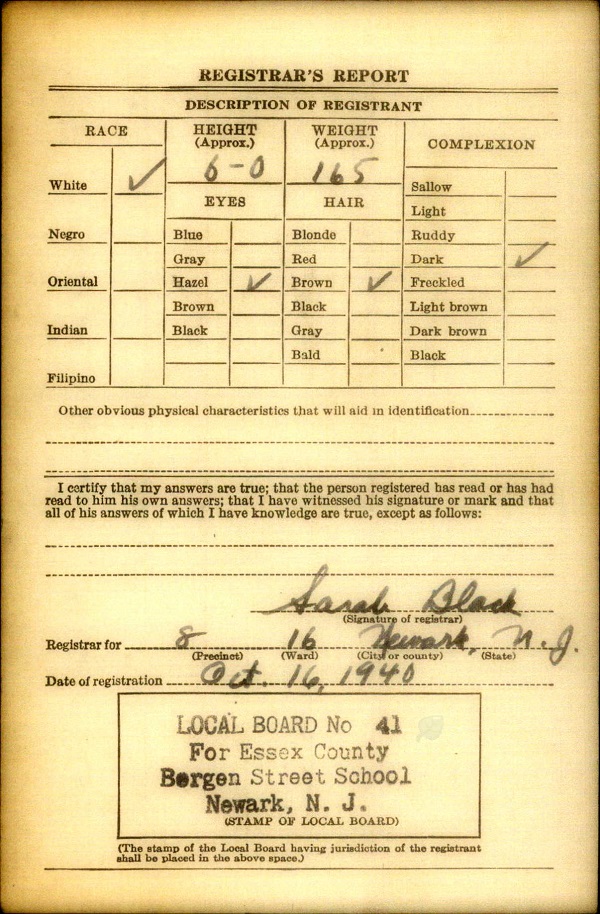 REGISTRAR'S REPORT
DESCRIPTION OF REGISTRANT
RACE
HEIGHT (Approx.)
WEIGHT (Approx.)
COMPLEXION
6-0
165
White ✓
Sallow
EYES
HAIR
Light
Negro
Blue
Blonde
Ruddy
Gray
Red
Dark ✓
Oriental
Hazel ✓
Brown ✓
Freckled
Brown
Black
Light brown
Indian
Black
Gray
Dark brown
Bald
Black
Filipino
Other obvious physical characteristics that will aid in identification
I certify that my answers are true; that the person registered has read or has had
read to him his own answers; that I have witnessed his signature or mark and that
all of his answers of which I have knowledge are true, except as follows:
Sarah Black
(Signature of registrar)
Registrar for 8 16 Newark, N. J.
(Precinct) (Ward) (City or county) (State)
Date of registration Oct. 16, 1940
LOCAL BOARD No 41
For Essex County
Bergen Street School
Newark, N. J.
(STAMP OF LOCAL BOARD)
(The stamp of the Local Board having jurisdiction of the registrant
shall be placed in the above space.)